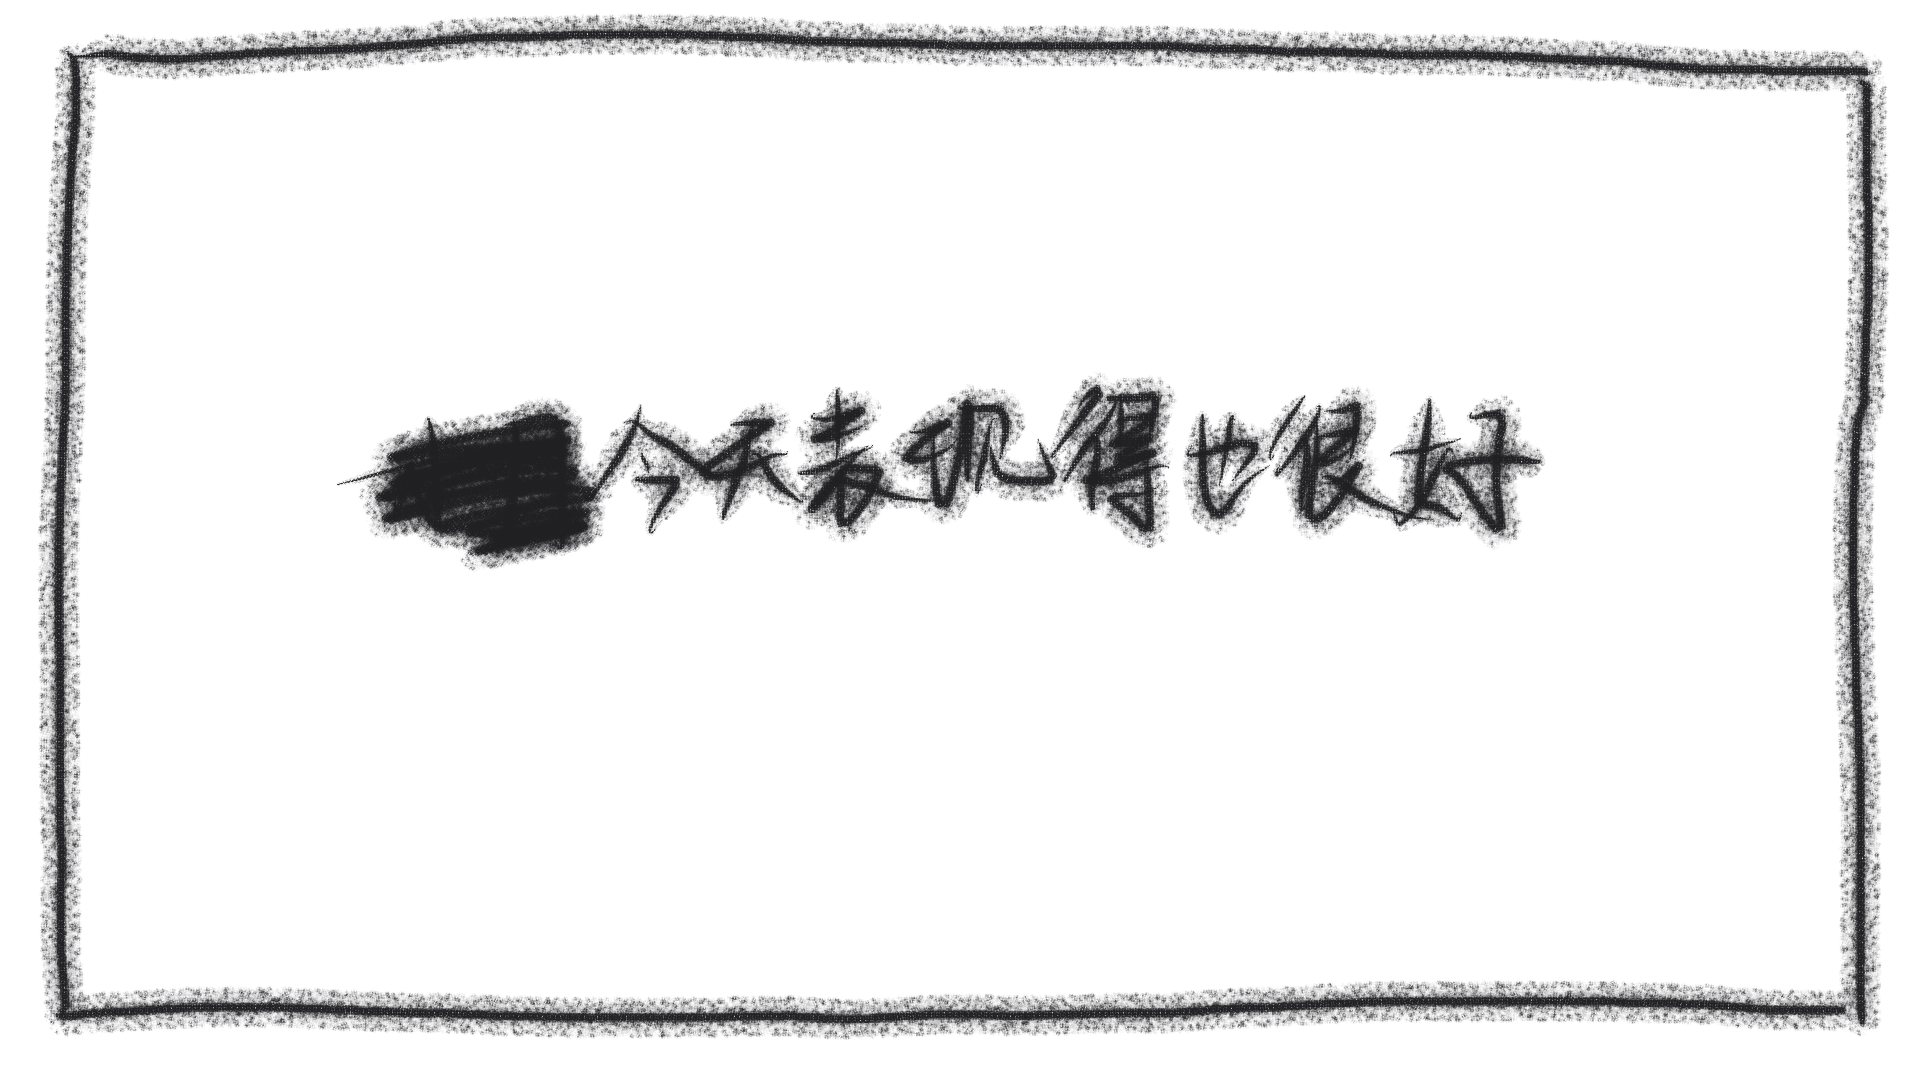 今天表现得也很好